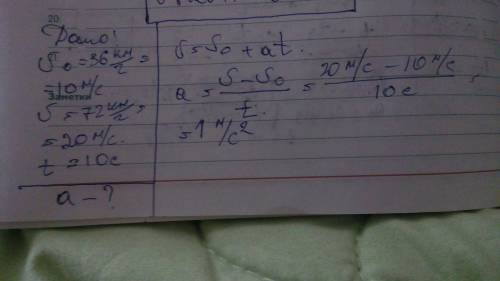 20
Дано:
υ₀ = 36 км/ч =
= 10 м/с
Заметки
υ = 72 км/ч =
= 20 м/с
t = 10с
a - ?
υ = υ₀ + at
a = (υ - υ₀)/t = (20 м/с - 10 м/с)/10с =
= 1 м/с²